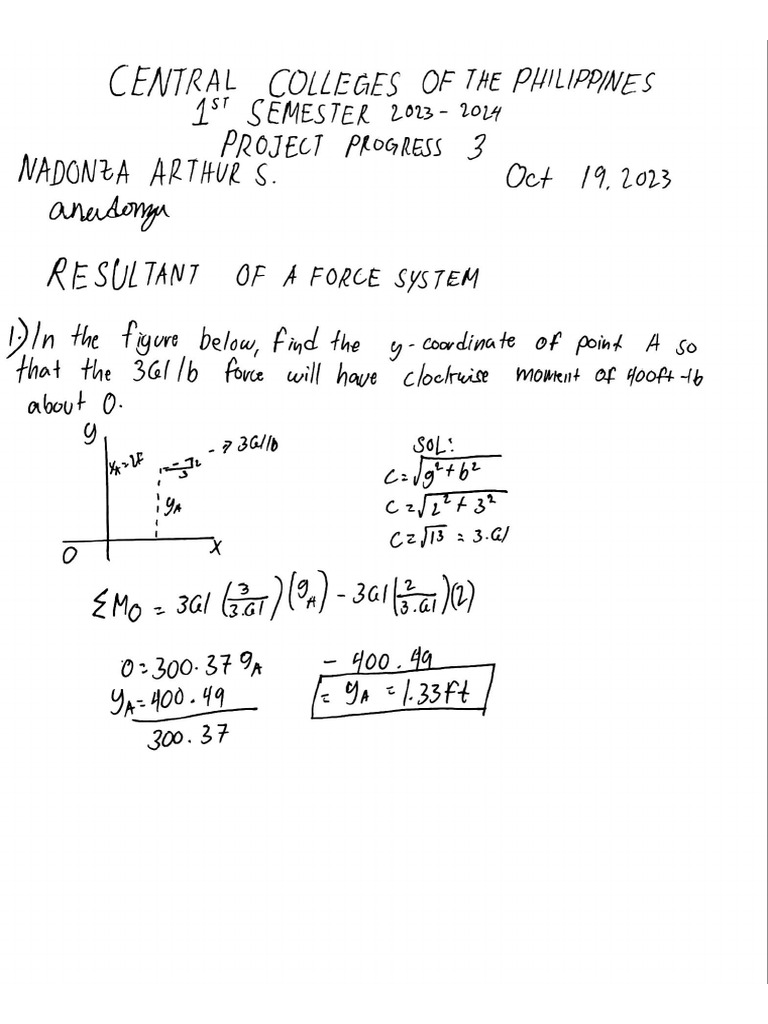 CENTRAL COLLEGES OF THE PHILIPPINES
1ST SEMESTER 2023-2024
PROJECT PROGRESS 3
NADONZA ARTHUR S. Oct 19, 2023
RESULTANT OF A FORCE SYSTEM
1.) In the figure below, find the y-coordinate of point A so
that the 361 lb force will have clockwise moment of 400ft-lb
about O.
y
361 lb
2
3
yA
O
x
SOL:
C=√g²+b²
C=√2²+3²
C=√13 = 3.61
ΣMO = 361 (3/3.61)(yA) - 361(2/3.61)(2)
0=300.37 yA - 400.49
yA=400.49
300.37
= yA = 1.33ft